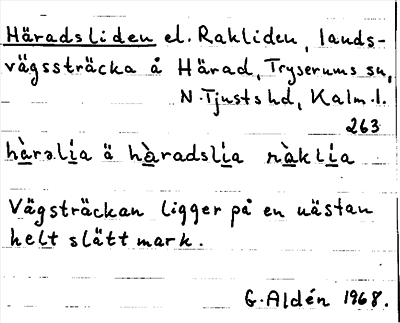 Häradsliden el. Rakliden, lands-
vägssträcka å Härad, Tryserums sn,
N. Tjusts hd, Kalm. l.
263
hàrəlía ä hàradslía ràklía
Vägsträckan ligger på en nästan
helt slätt mark.
G. Aldén 1968.